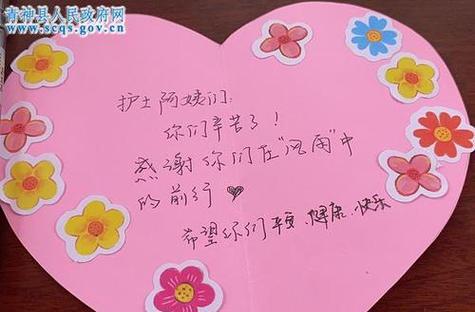 青神县人民政府网
www.scqs.gov.cn
护士阿姨们:
你们辛苦了!
感谢你们在"风雨"中
的前行
希望你们平安、健康、快乐